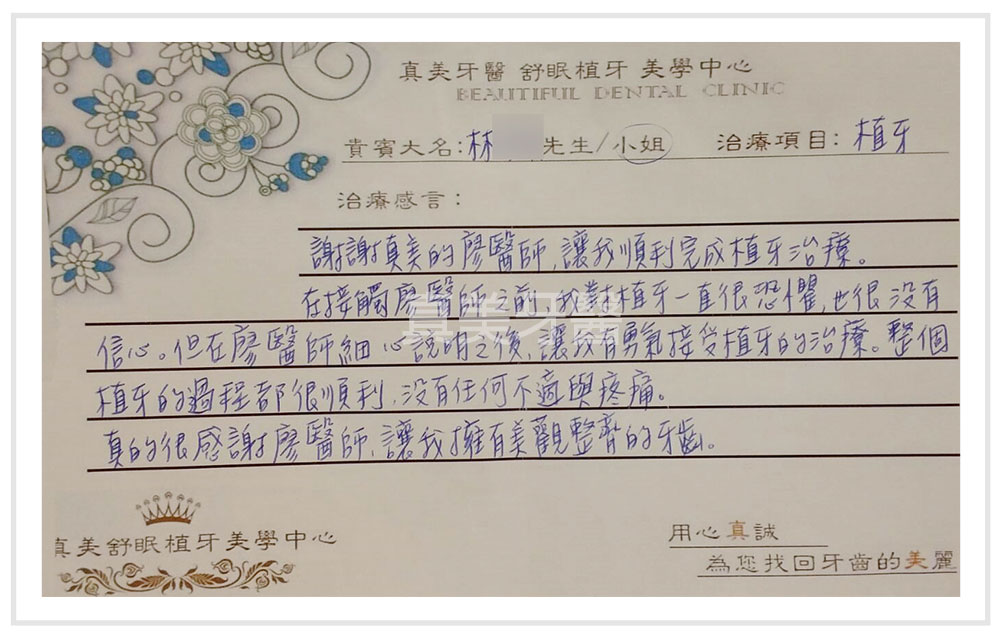 真美牙醫 舒眠植牙 美學中心
BEAUTIFUL DENTAL CLINIC
貴賓大名:林 先生/小姐 治療項目:植牙
治療感言:
謝謝真美的廖醫師,讓我順利完成植牙治療。
在接觸廖醫師之前,我對植牙一直很恐懼,也很没有
信心。但在廖醫師細心說明之後,讓我有勇氣接受植牙的治療。整個
植牙的過程都很順利,没有任何不適與疼痛。
真的很感謝廖醫師,讓我擁有美觀整齊的牙齒。
真美牙醫
真美舒眠植牙美學中心
用心真誠
為您找回牙齒的美麗